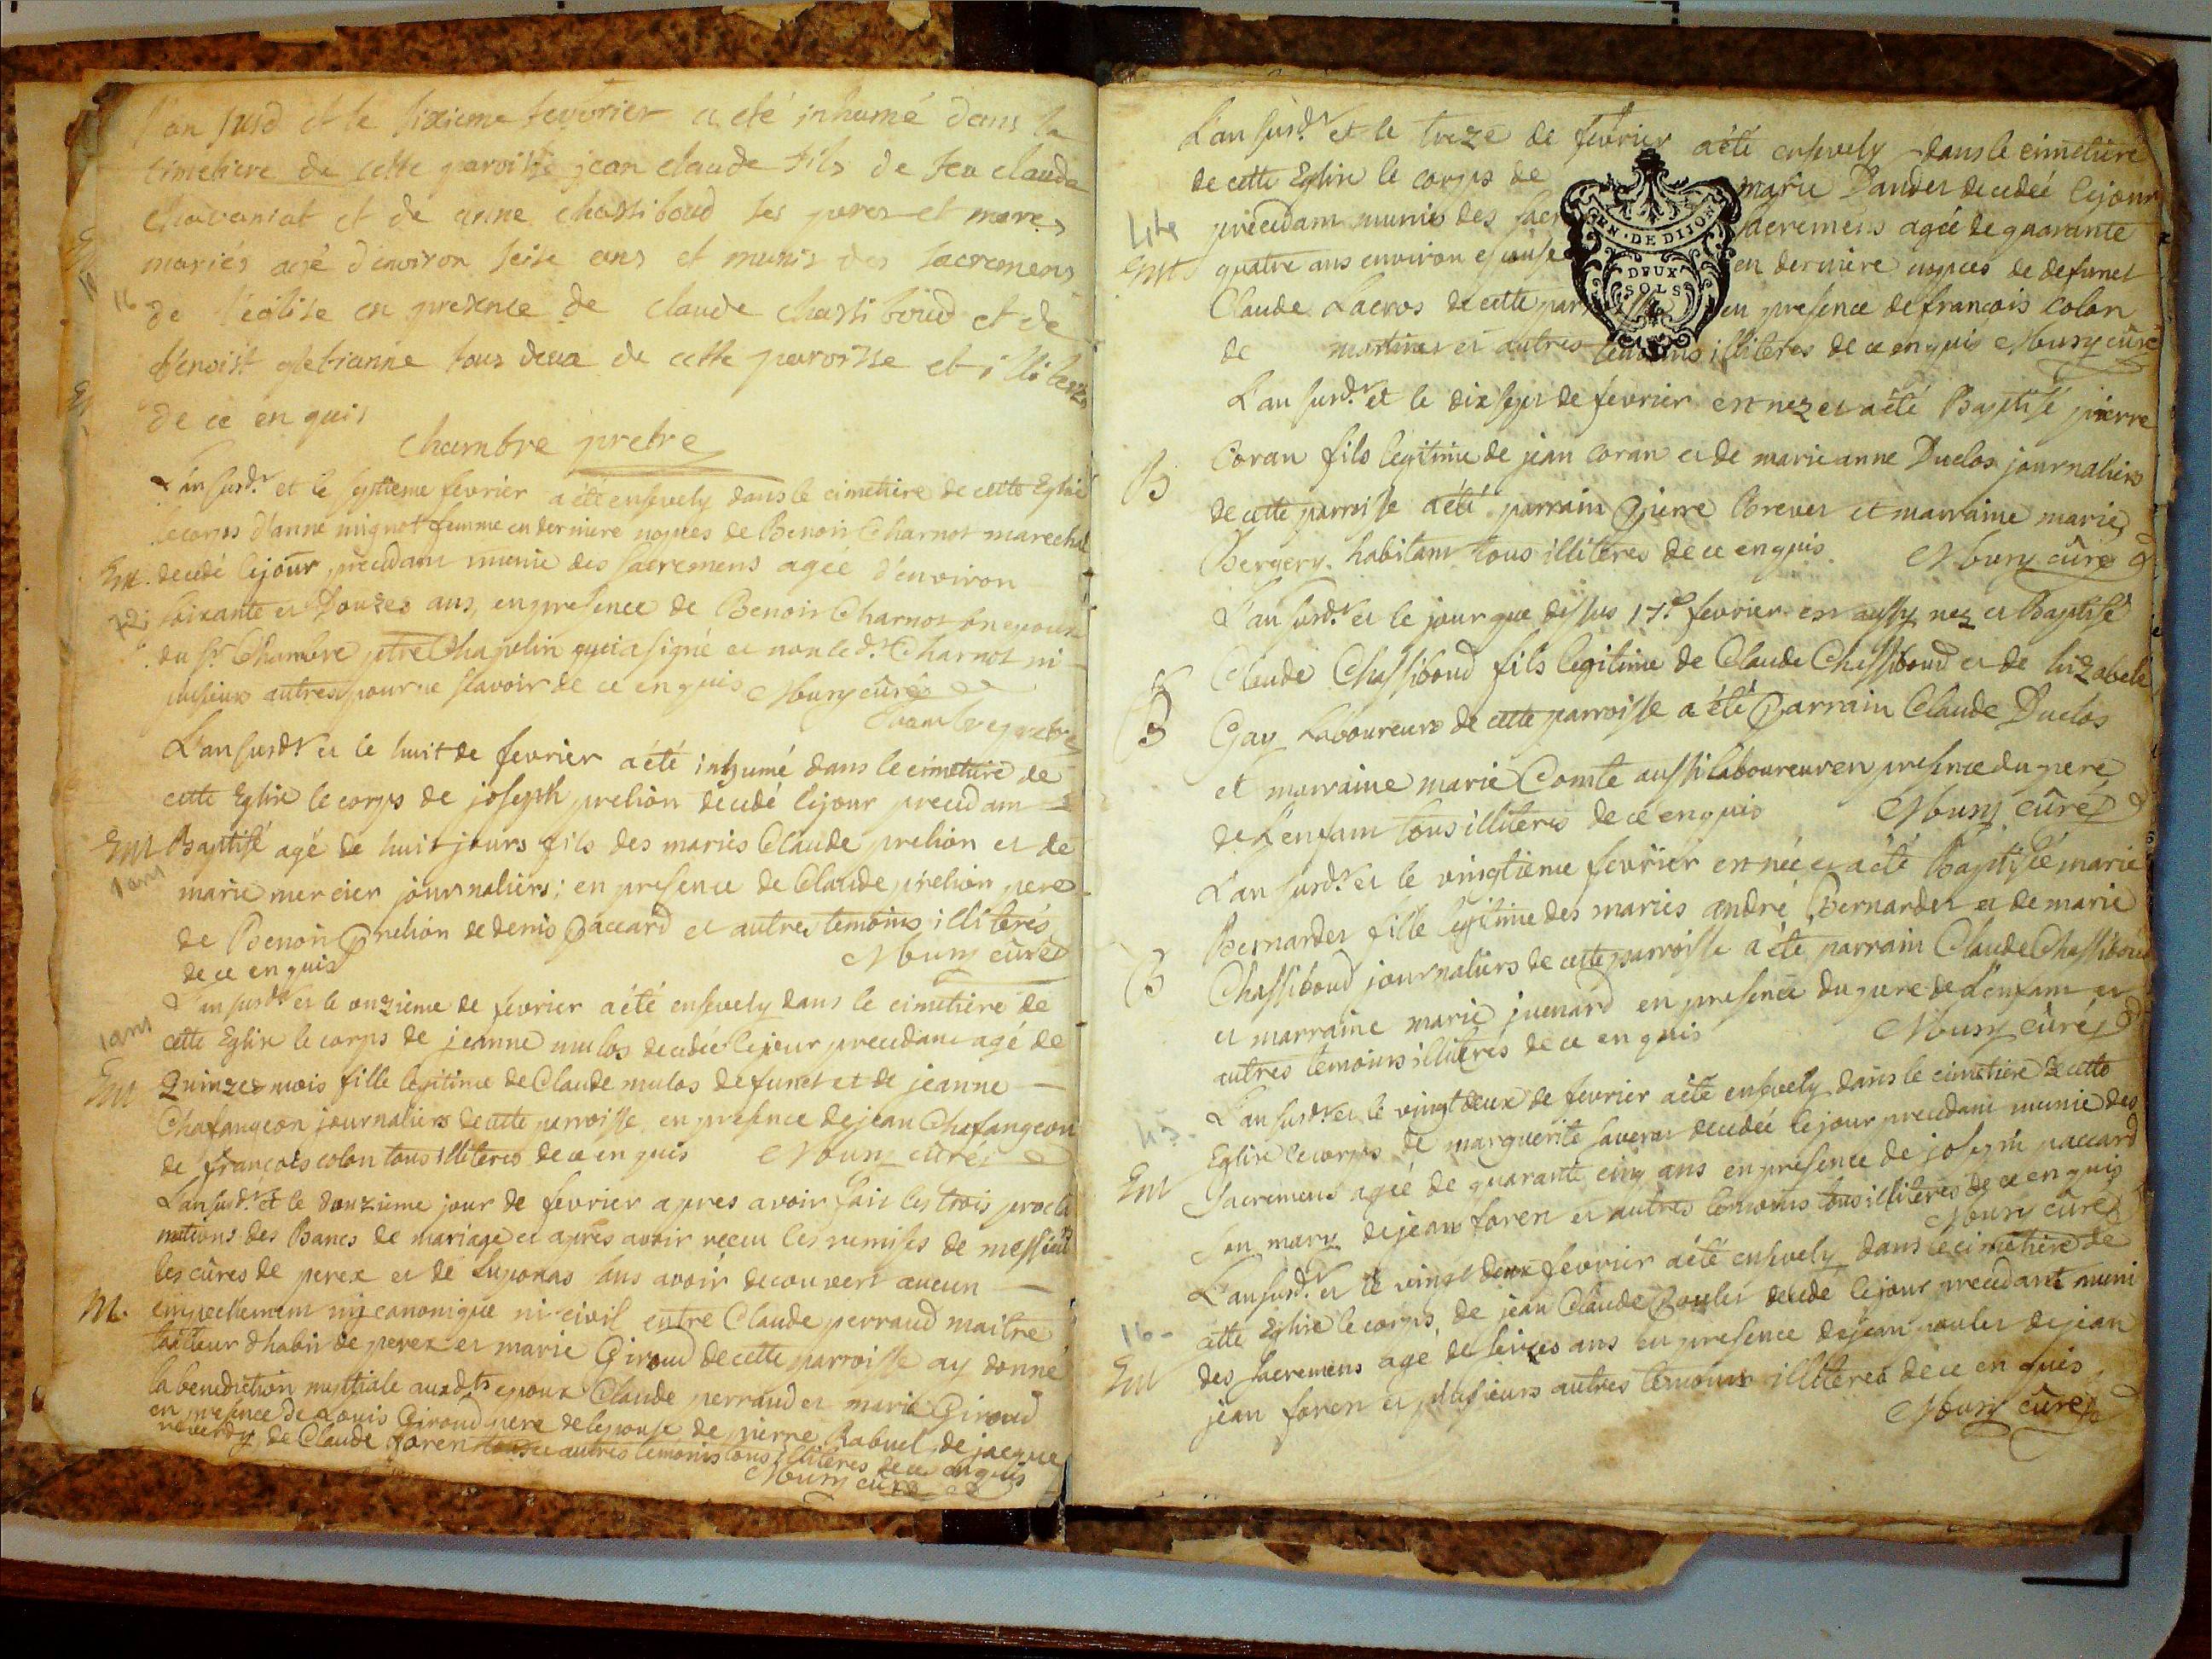 l'an susd et le sixieme fevvrier a eté inhumé dans la
cimetiere de cette paroisse jean claude fils de feu claude
chavaniat et de anne chassiboud ses peres et meres
mariés agé d'environ seise ans et munis des sacremens
16 de l'eglise en presence de claude chassiboud et de
benoist tous deux de cette paroisse et illiteres
de ce enquis
chambre pretre
L'an susd.t et le septieme fevrier a été ensevely dans le cimetiere de cette Eglise
le corps d'anne mignot femme en derniere nopces de Benoit Charnot marechal
Ent. decedé le jour precedam munie des sacremens agée d'environ
72 soixante et Douzes ans, en presence de Benoit Charnot son epoux
du sr Chambre ptre Chapelin qui a signé et non led.t Charnot ni
plusieurs autres pour ne scavoir de ce enquis Moury curé
Chambre pretre
L'an susd.t et le huit de fevrier a été inhumé dans le cimetiere de
cette Eglise le corps de joseph prelion decedé le jour precedam
Ent Baptisé agé de huit jours fils des mariés Claude prelion et de
1 ans
marie mercier journaliers; en presence de Claude prelion pere
de Benoit Prelion de denis Paccard et autres temoins illiteres
de ce enquis Moury curé
L'an susd.t et le onzieme de fevrier a été ensevely dans le cimetiere de
1 ans cette Eglise le corps de jeanne mulos decedée le jour precedant agé de
Ent Quinzes mois fille legitime de Claude mulos defunct et de jeanne
Chafangeon journaliers de cette parroisse en presence de jean Chafangeon
de françois colon tous illiteres de ce enquis Moury curé
L'an susd.t et le douzieme jour de fevrier apres avoir fait les trois procla
mations des Bancs de mariage et apres avoir receu les remises de messieurs
les cures de perex et de Luponas sans avoir decouvert aucun
M. empechement ni canonique ni civil entre Claude perraud maitre
tailleur d'habit de perex et marie Giroud de cette parroisse ay donné
la benediction nuptiale auxd.ts epoux Claude perraud et marie Giroud
en presence de Louis Giroud pere de lepouse de pierre Rabuel de jacque
reverdy de Claude foren et autres temoins tous illiteres de ce enquis
Moury curé
L'an susd.t et le treze de fevrier a été ensevely dans le cimetiere
de cette Eglise le corps de marie Dandet decedeé le jour
44 precedam munie des sacremens agée de quarante
Ent quatre ans environ epouse en derniere nopces de defunct
GEN. DE DIJON
DEUX
SOLS
Claude Lacros de cette parroisse en presence de francois colon
de martinet et autres temoins illiteres de ce enquis Moury curé
L'an susd.t et le dix sept de fevrier est nez et a été Baptisé pierre
B Coran fils legitime de jean coran et de marie anne Duclos journaliers
de cette parroisse a été parrain Pierre Brevet et marraine marie
Bergery habitam tous illiteres de ce enquis Moury curé
L'an susd.t et le jour que dessus 17e fevrier est aussy nez et Baptisé
B Claude Chassiboud fils legitime de Claude Chassiboud et de lizabele
Gay Laboureurs de cette parroisse a été Parrain Claude Duclos
et marraine marie Comte aussi laboureur en presence du pere
de L'enfam tous illiteres de ce enquis Moury curé
L'an susd.t et le vingtieme fevrier est née et a été Baptisée marie
Bernardet fille legitime des mariés andré Bernardet et de marie
B Chassiboud journaliers de cette parroisse a été parrain Claude Chassiboud
et marraine marie juenard en presence du pere de l'enfam et
autres temoins illiteres de ce enquis Moury curé
L'an susd.t et le vingt deux de fevrier a été ensevely dans le cimetiere de cette
45 Eglise le corps de marguerite saveret decedeé le jour precedant munie des
Ent Sacremens agée de quarante cinq ans en presence de joseph paccard
son mary de jean foren et autres temoins tous illiteres de ce enquis
Moury curé
L'an susd.t et le vingt deux fevrier a été ensevely dans le cimetiere de
16 cette Eglise le corps de jean Claude Poulet decedé le jour precedant muni
Ent des sacremens agé de seizes ans en presence de jean poulet de jean
jean foren et plusieurs autres temoins illiteres de ce enquis
Moury curé